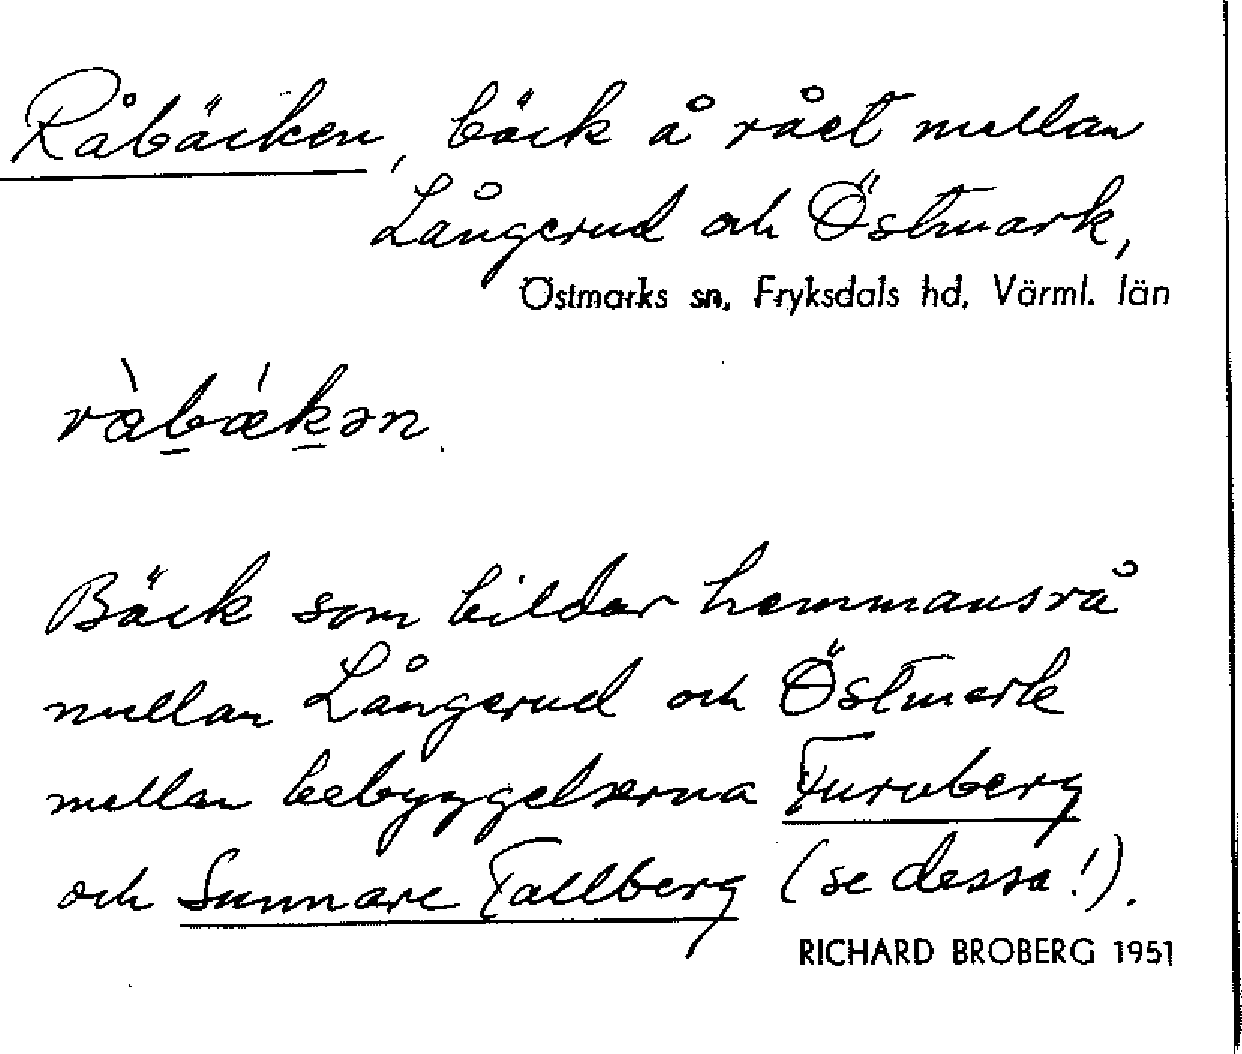 Råbäcken, bäck å rået mellan
Långerud och Östmark,
Östmarks sn, Fryksdals hd, Värml. län
ràbǽkən.
Bäck som bildar hemmansrå
mellan Långerud och Östmark
mellan bebyggelserna Furuberg
och Sunnare Tallberg (se dessa!).
RICHARD BROBERG 1951